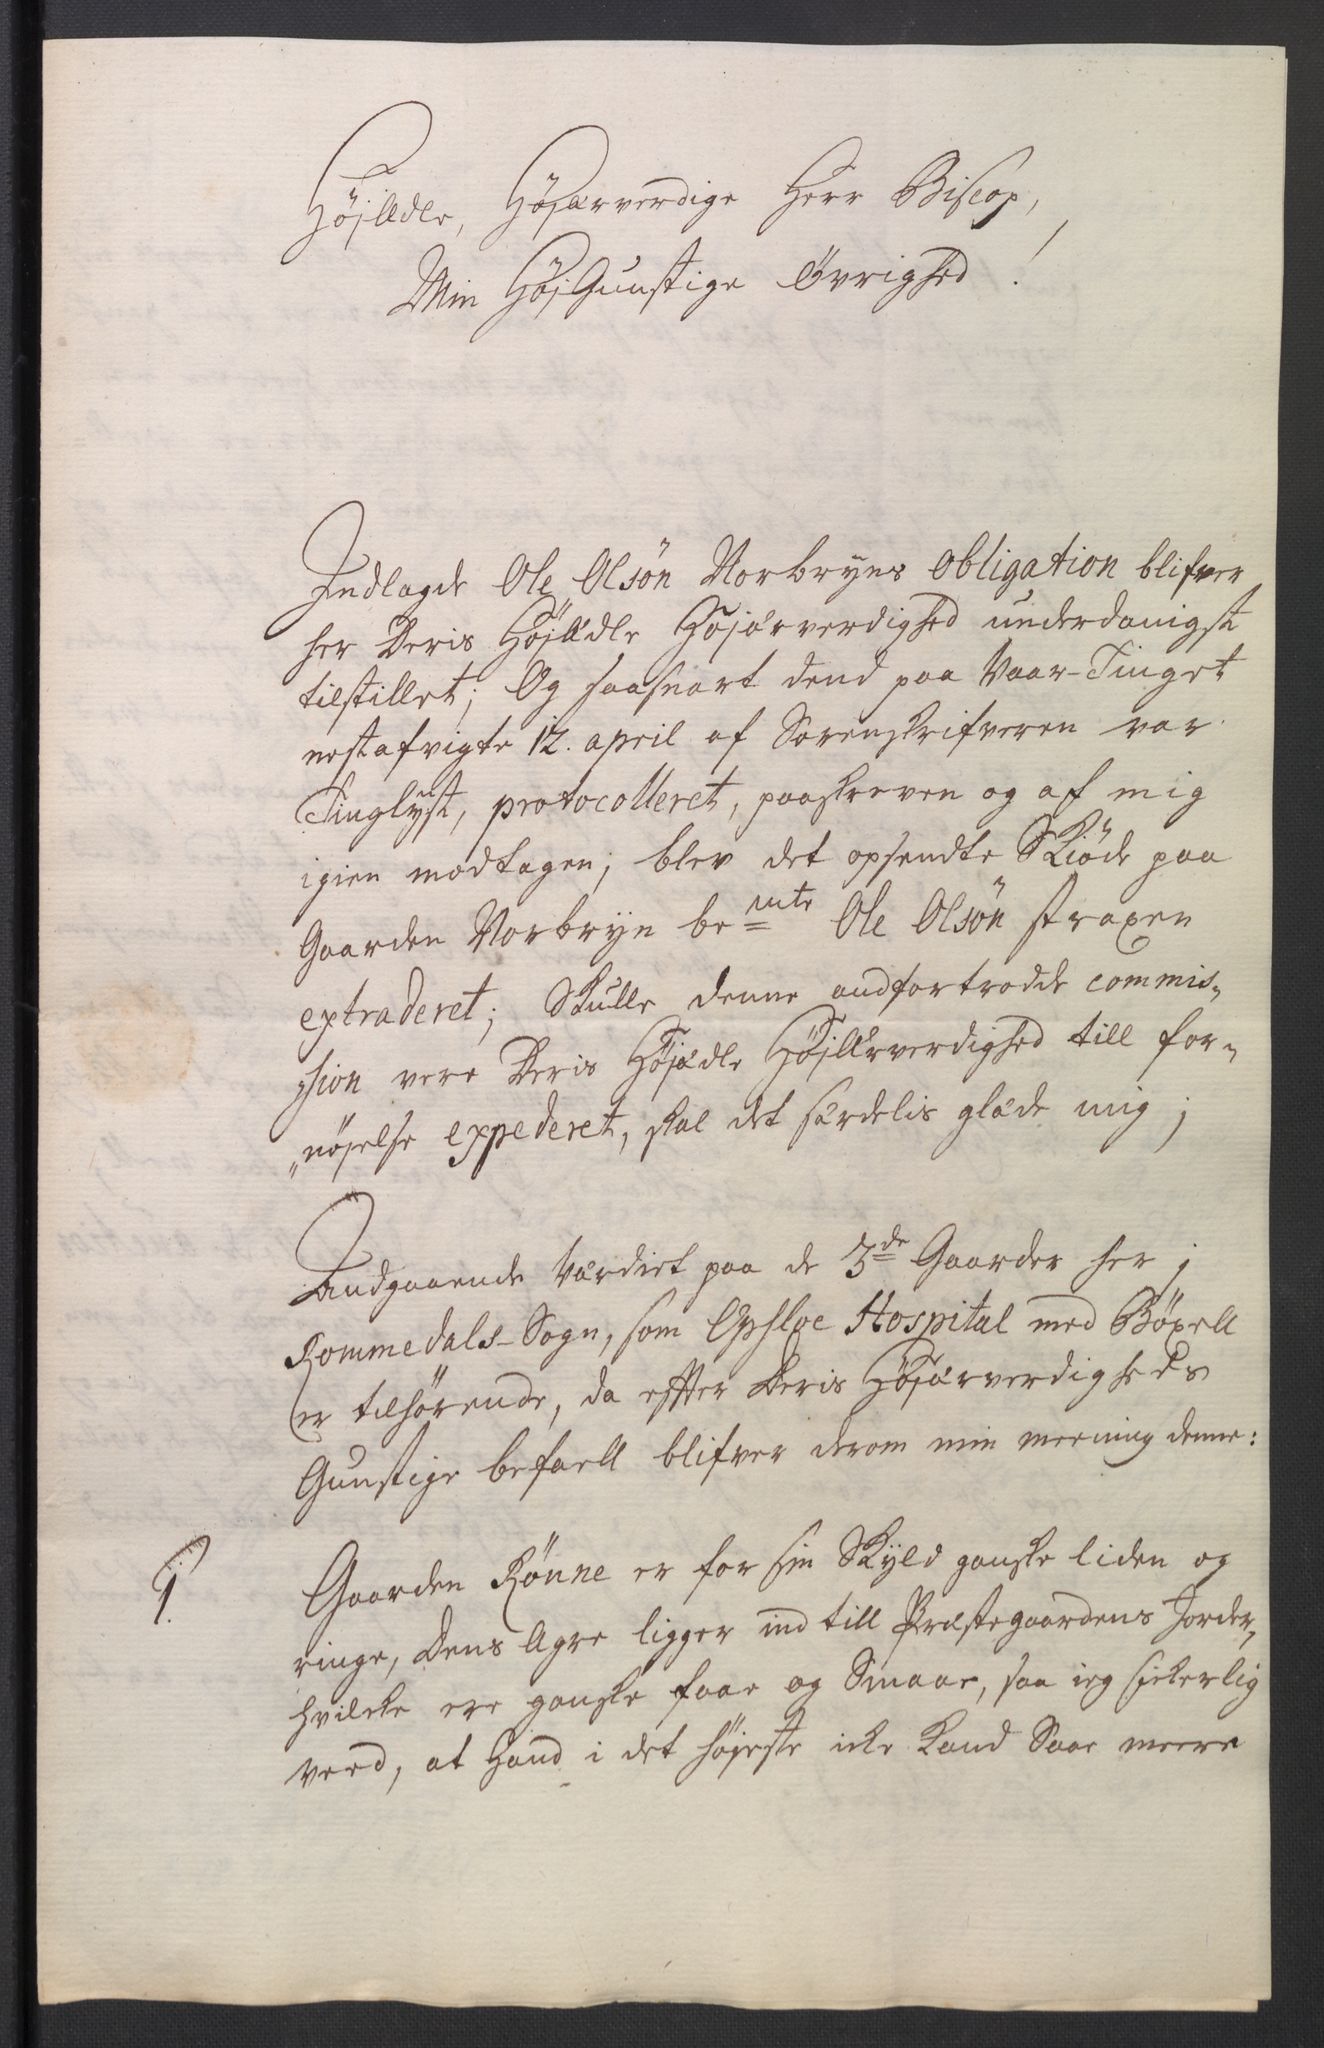 HöjÆdle, Höjærverdige Herr Biscop,
Min HöjGunstige Övrighed!
Indlagde Ole Olsön Norbryns obligation blifver
her Deris HöjÆdle Höjærverdighed underdanigst
tilstillet; Og saasnart dend paa Vaar-Tinget
nestafvigte 12. april af Sorenskrifveren var
Tinglyst, protocolleret, paaskreven og af mig
igien modtagen, blev det opsendte Skiöde paa
Gaarden Norbryn bemte Ole Olsön straxen
extraderet; Skulle denne andfortrodde commis„
„sion vere Deris Höjædle HöjÆrverdighed till for„
„nöjelse expederet, skal det særdelis glæde mig;
Andgaaende Værdiet paa de 3de Gaarder her i
Rommedals-Sogn, som Opsloe Hospital med Böxell
er tilhörende, da efter Deris Höjærverdigheds
Gunstige befaell blifver derom min meening denne:
1. Gaarden Rönne er for sin Skyld ganske liden og
ringe, Dens Agre ligger ind till Præstegaardens Jorder,
hvilcke ere ganske faae og Smaae, saa ieg sickerlig
veed, at Hand i det höjeste icke kand Saae meere